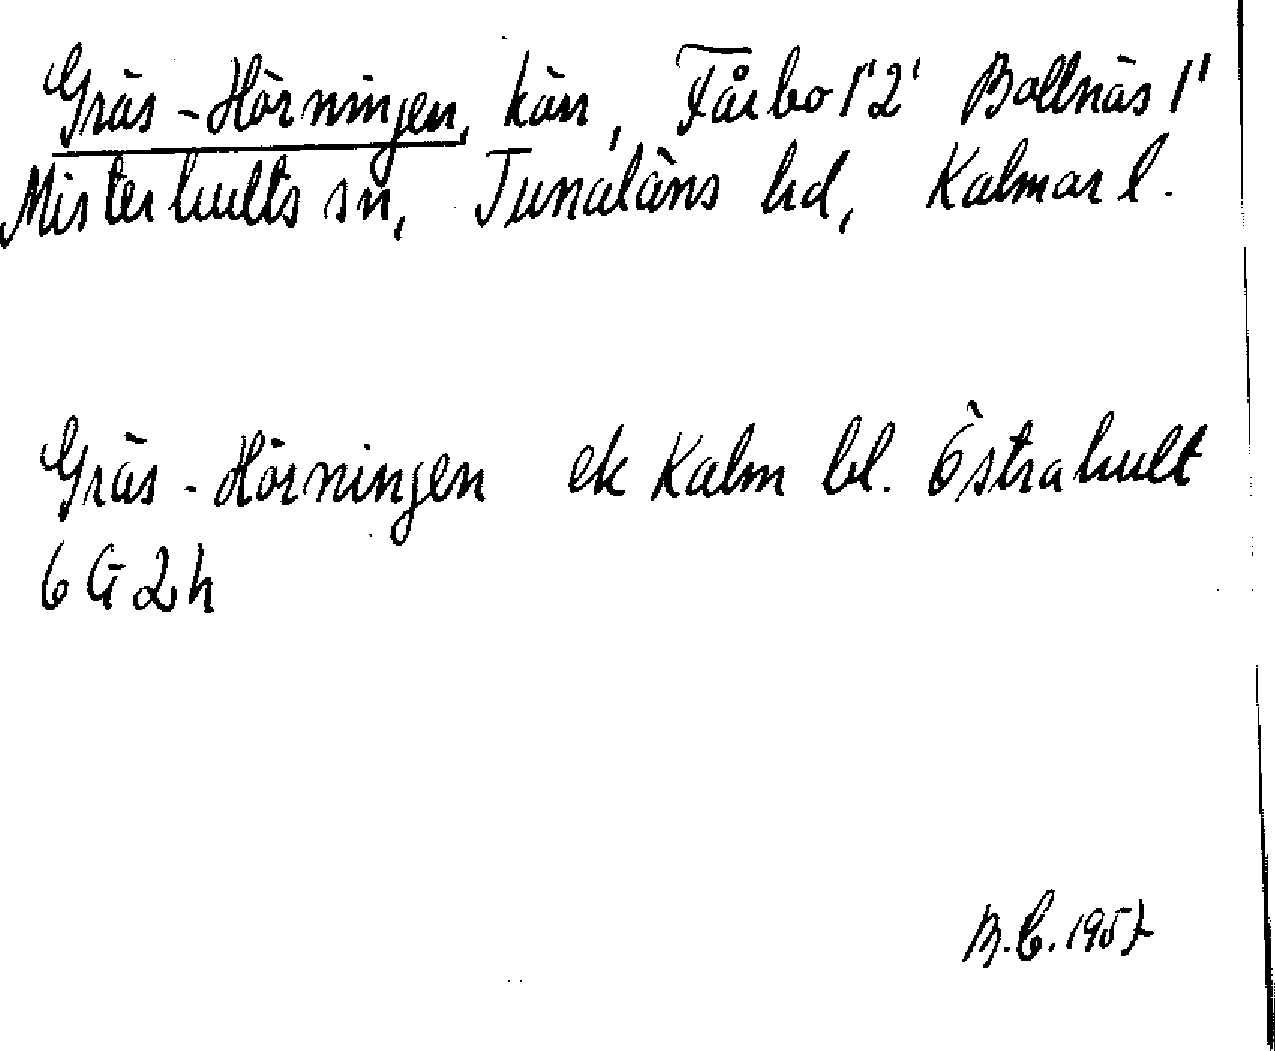 Gräs-Hörningen, kärr, Fårbo 1'2' Bollnäs 1'
Misterhults sn, Tunaläns hd, Kalmar l.
Gräs-Hörningen ek Kalm bl. Östrahult
6 G 2 h
B.C. 1957